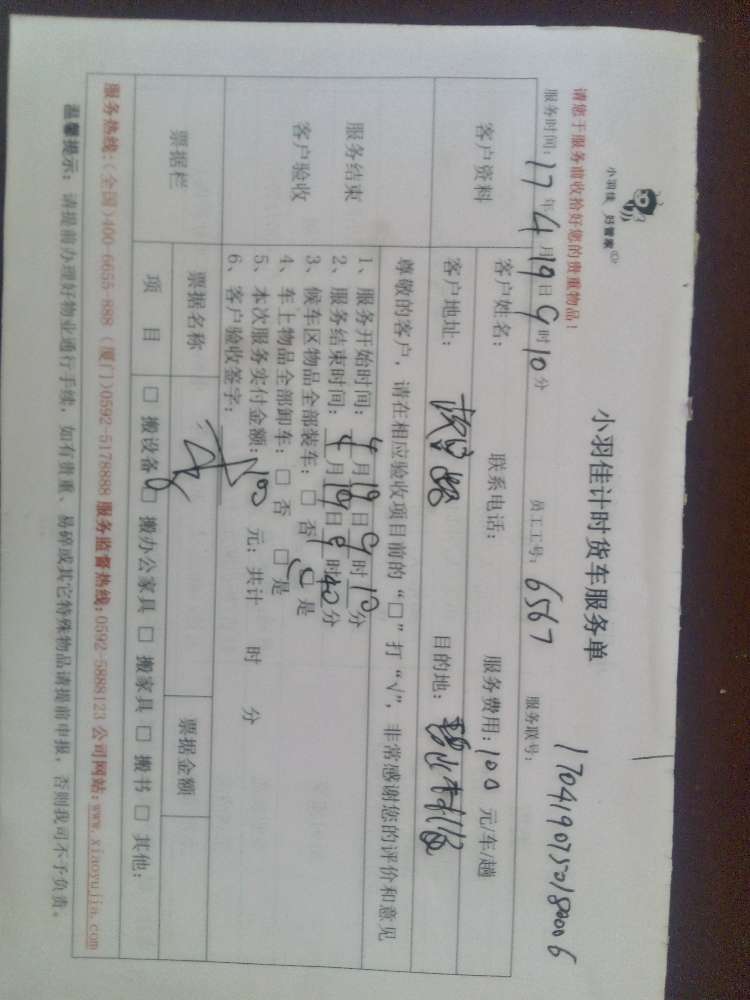 小羽佳 好管家
小羽佳计时货车服务单
请您于服务前收拾好您的贵重物品!
服务时间: 17年4月19日9时10分 员工工号: 6567 服务联号:
客户资料
客户姓名: 联系电话: 服务费用: 100 元/车/趟
客户地址: 目的地:
服务结束
客户验收
尊敬的客户,请在相应验收项目前的“□”打“√”,非常感谢您的评价和意见
1、服务开始时间: 4月19日9时10分
2、服务结束时间: 4月19日9时40分
3、候车区物品全部装车: □ 否 □ 是
4、车上物品全部卸车: □ 否 □ 是
5、本次服务实付金额: 100 元; 共计 时 分
6、客户验收签字:
票据栏
票据名称 票据金额
项 目 □ 搬设备 □ 搬办公家具 □ 搬家具 □ 搬书 □ 其他:
服务热线:(全国)400-6655-888 (厦门)0592-5178888 服务监督热线:0592-5888123 公司网站:www.xiaoyujia.com
温馨提示: 请提前办理好物业通行手续,如有贵重、易碎或其它特殊物品请提前申报,否则我司不予负责。